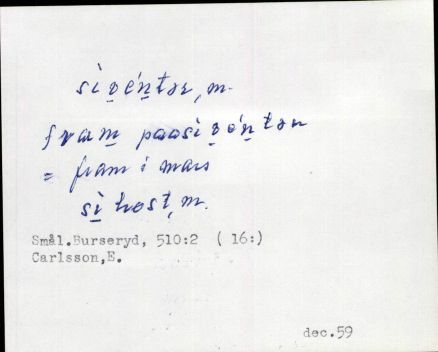 sivéntər, m.
fram paasivéntən
= fram i mars
si host, m.
Smål.Burseryd, 510:2 ( 16:)
Carlsson,E.
dec.59